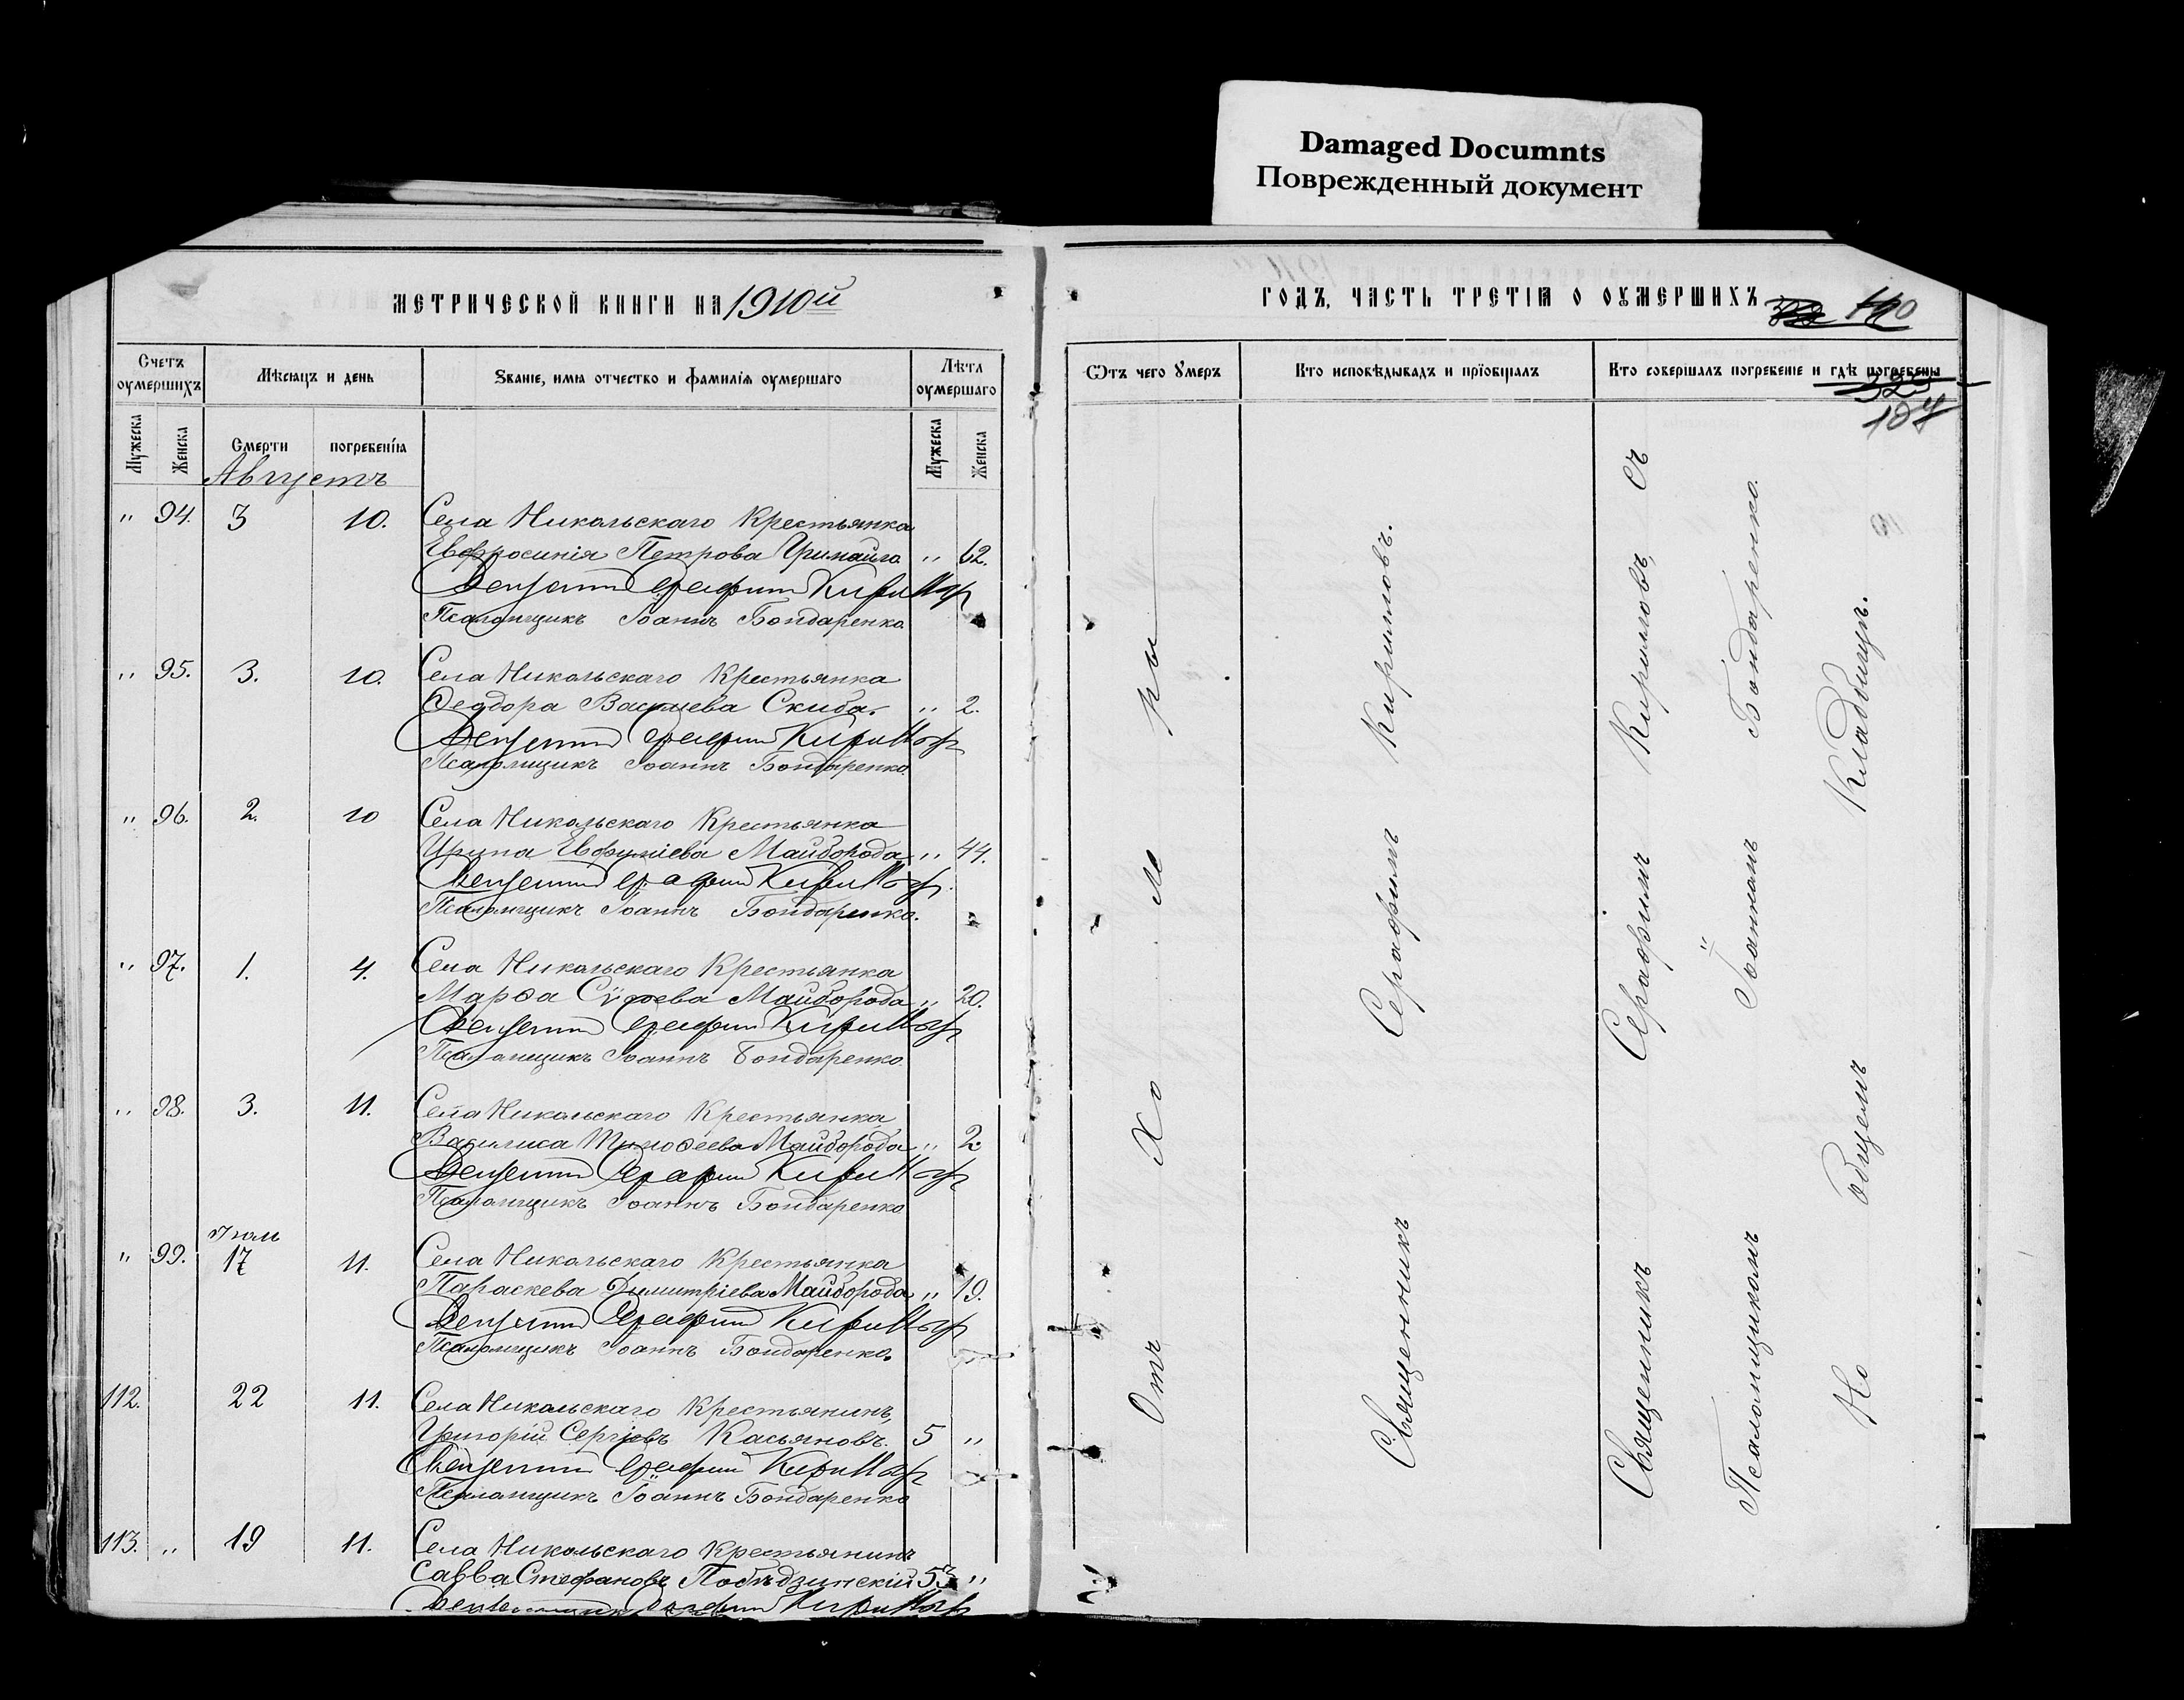 Damaged Documnts
Поврежденный документ
МЕТРИЧЕСКОЙ КНИГИ НА 1910й
Счетъ оумершихъ
Мѣсяцъ и день
Званіе, имя отчество и фамилія оумершаго
Лѣта оумершаго
Мужеска
Женска
Смерти
погребенія
Мужеска
Женска
Августъ
" 94. 3 10. Села Никольскаго Крестьянка
Евфросинія Петрова Гримайло " 62.
Священникъ Серафимъ Кирилловъ
Псаломщикъ Іоаннъ Бондаренко.
" 95. 3. 10. Села Никольскаго Крестьянка
Ѳеодора Васильева Скиба. " 2.
Священникъ Серафимъ Кирилловъ
Псаломщикъ Іоаннъ Бондаренко.
" 96. 2. 10 Села Никольскаго Крестьянка
Ирина Евфиміева Майборода " 44.
Священникъ Серафимъ Кирилловъ
Псаломщикъ Іоаннъ Бондаренко.
" 97. 1. 4. Села Никольскаго Крестьянка
Марѳа Майборода " 20.
Священникъ Серафимъ Кирилловъ
Псаломщикъ Іоаннъ Бондаренко.
" 98. 3. 11. Села Никольскаго Крестьянка
Василиса Тимоѳеева Майборода " 2
Священникъ Серафимъ Кирилловъ
Псаломщикъ Іоаннъ Бондаренко
Іюль
" 99. 17 11. Села Никольскаго Крестьянка
Параскева Димитріева Майборода " 19.
Священникъ Серафимъ Кирилловъ
Псаломщикъ Іоаннъ Бондаренко.
112. 22 11. Села Никольскаго Крестьянинъ,
Григорій Сергіевъ Касьяновъ. 5 "
Священникъ Серафимъ Кирилловъ
Псаломщикъ Іоаннъ Бондаренко
113. " 19 11. Села Никольскаго Крестьянинъ
Савва Стефановъ Побѣдзинскій 53 "
Священникъ Серафимъ Кирилловъ
ГОДЪ, ЧАСТЬ ТРЕТІЯ О ОУМЕРШИХЪ
Ѿтъ чего Умеръ
Кто исповѣдывалъ и пріобщалъ
Кто совершалъ погребеніе и гдѣ погребены
Отъ Холеры
Священникъ Серафимъ Кирилловъ.
Священникъ Серафимъ Кирилловъ, съ
Псаломщикомъ Іоанномъ Бондаренко.
На общемъ Кладбищѣ.